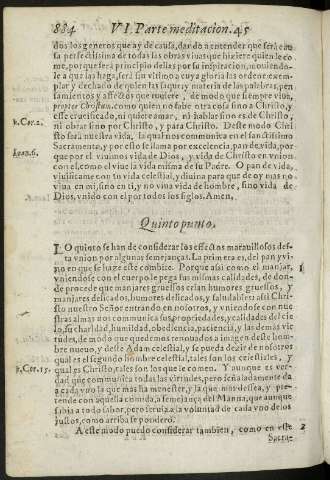 884 VI. Parte meditacion. 45
dos los generos que ay de causa, dando a entender que será cau
sa perfectissima de todas las obras viuas que hiziere quien le co
me, porque será principio dellas por su inspiracion, mouiendo-
le a que las haga, será su vltimo
y declado de quien las saque, y materia de las palabras, pen-
samientos y affectos que tuuiere, de modo que siempre viua
propter Christum, como quien no sabe otra cosa sino a Christo, y
1. Cor. 2.
esse crucificado, ni quiere amar, ni hablar sino es de Christo,
ni obrar sino por Christo, y para Christo. Deste modo Chris
to será nuestra vida, la qual nos comunica en el sanctissimo
Ioan. 6.
Sacramento, y por esto se llama por excelencia, pan de vida, por
que por el viuimos vida de Dios, y vida de Christo en vnion
con el, como el viue la vida misma de su Padre. O pan de vida,
viuificame con tu vida celestial, y diuina para que de oy mas no
viua en mi, sino en ti, y no viua vida de hombre, sino vida de
Dios, vnido con el por todos los siglos. Amen.
Quinto punto.
LO quinto se han de considerar los effectos marauillosos des-
ta vnion por algunas semejanças. La primera es, del pan y vi-
no en que se haze este combite. Porque assi como el manjar,
1
vniendose con el cuerpo le pega sus mismas calidades, de don-
de procede que manjares gruessos crian humores gruessos, y
manjares delicados, humores delicados, y saludables: assi Chris
to nuestro Señor entrando en nosotros, y vniendose con nue
stras almas nos comunica sus propriedades, y calidades del cie
lo, su charidad, humildad, obediencia, paciencia, y las demas vir
tudes, de modo que quedemos renouados a imagen deste hom
bre nueuo, y deste Adam celestial, y se pueda dezir de nosotros
1. Cor. 15.
qual es el segundo hombre celestial, tales son los celestiales, y
qual es Christo, tales son los que le comen. Y aunque es ver-
dad que communica todas las virtudes, pero señaladamente da
a cada vno la que mas ha menester, y la que mas dessea, y pre-
tende con aquella comida, a semejança del Manna, que aunque
sabia a todo sabor, pero seruia a la voluntad de cada vno de los
justos, como arriba se ponderó.
A este modo puedo considerar tambien, como en este
2